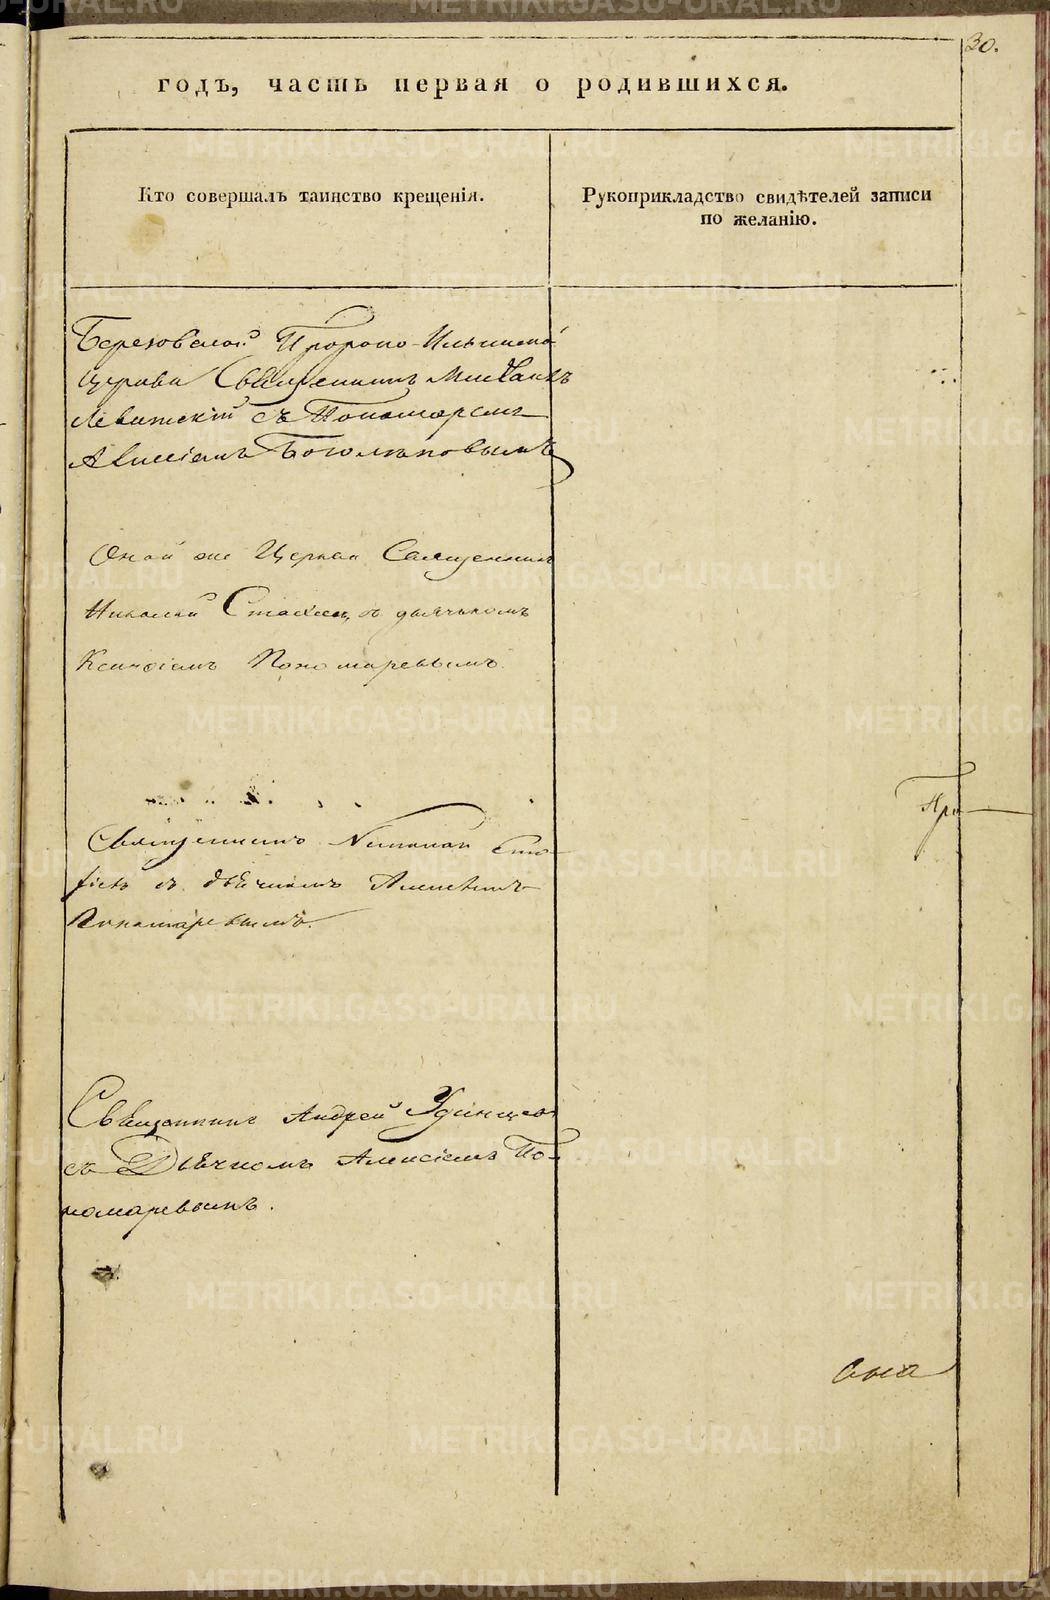 30.
годъ, часть первая о родившихся.
Кто совершалъ таинство крещенія.
Рукоприкладство свидѣтелей записи
по желанію.
Березовской Пророко-Ильинской
Церкви Священникъ Михаилъ
Левитскій съ Пономаремъ
Алексіемъ Боголѣповымъ
Оной же Церкви Священникъ
Николай Стахіевъ съ дьячькомъ
Пономаревымъ.
Священникъ Николай Ста-
хіевъ съ дьячкомъ Алексѣемъ
Пономаревымъ.
Священникъ Андрей Удинцевъ
съ Дьячкомъ Алексіемъ По-
номаревымъ.
METRIKI.GASO-URAL.RU